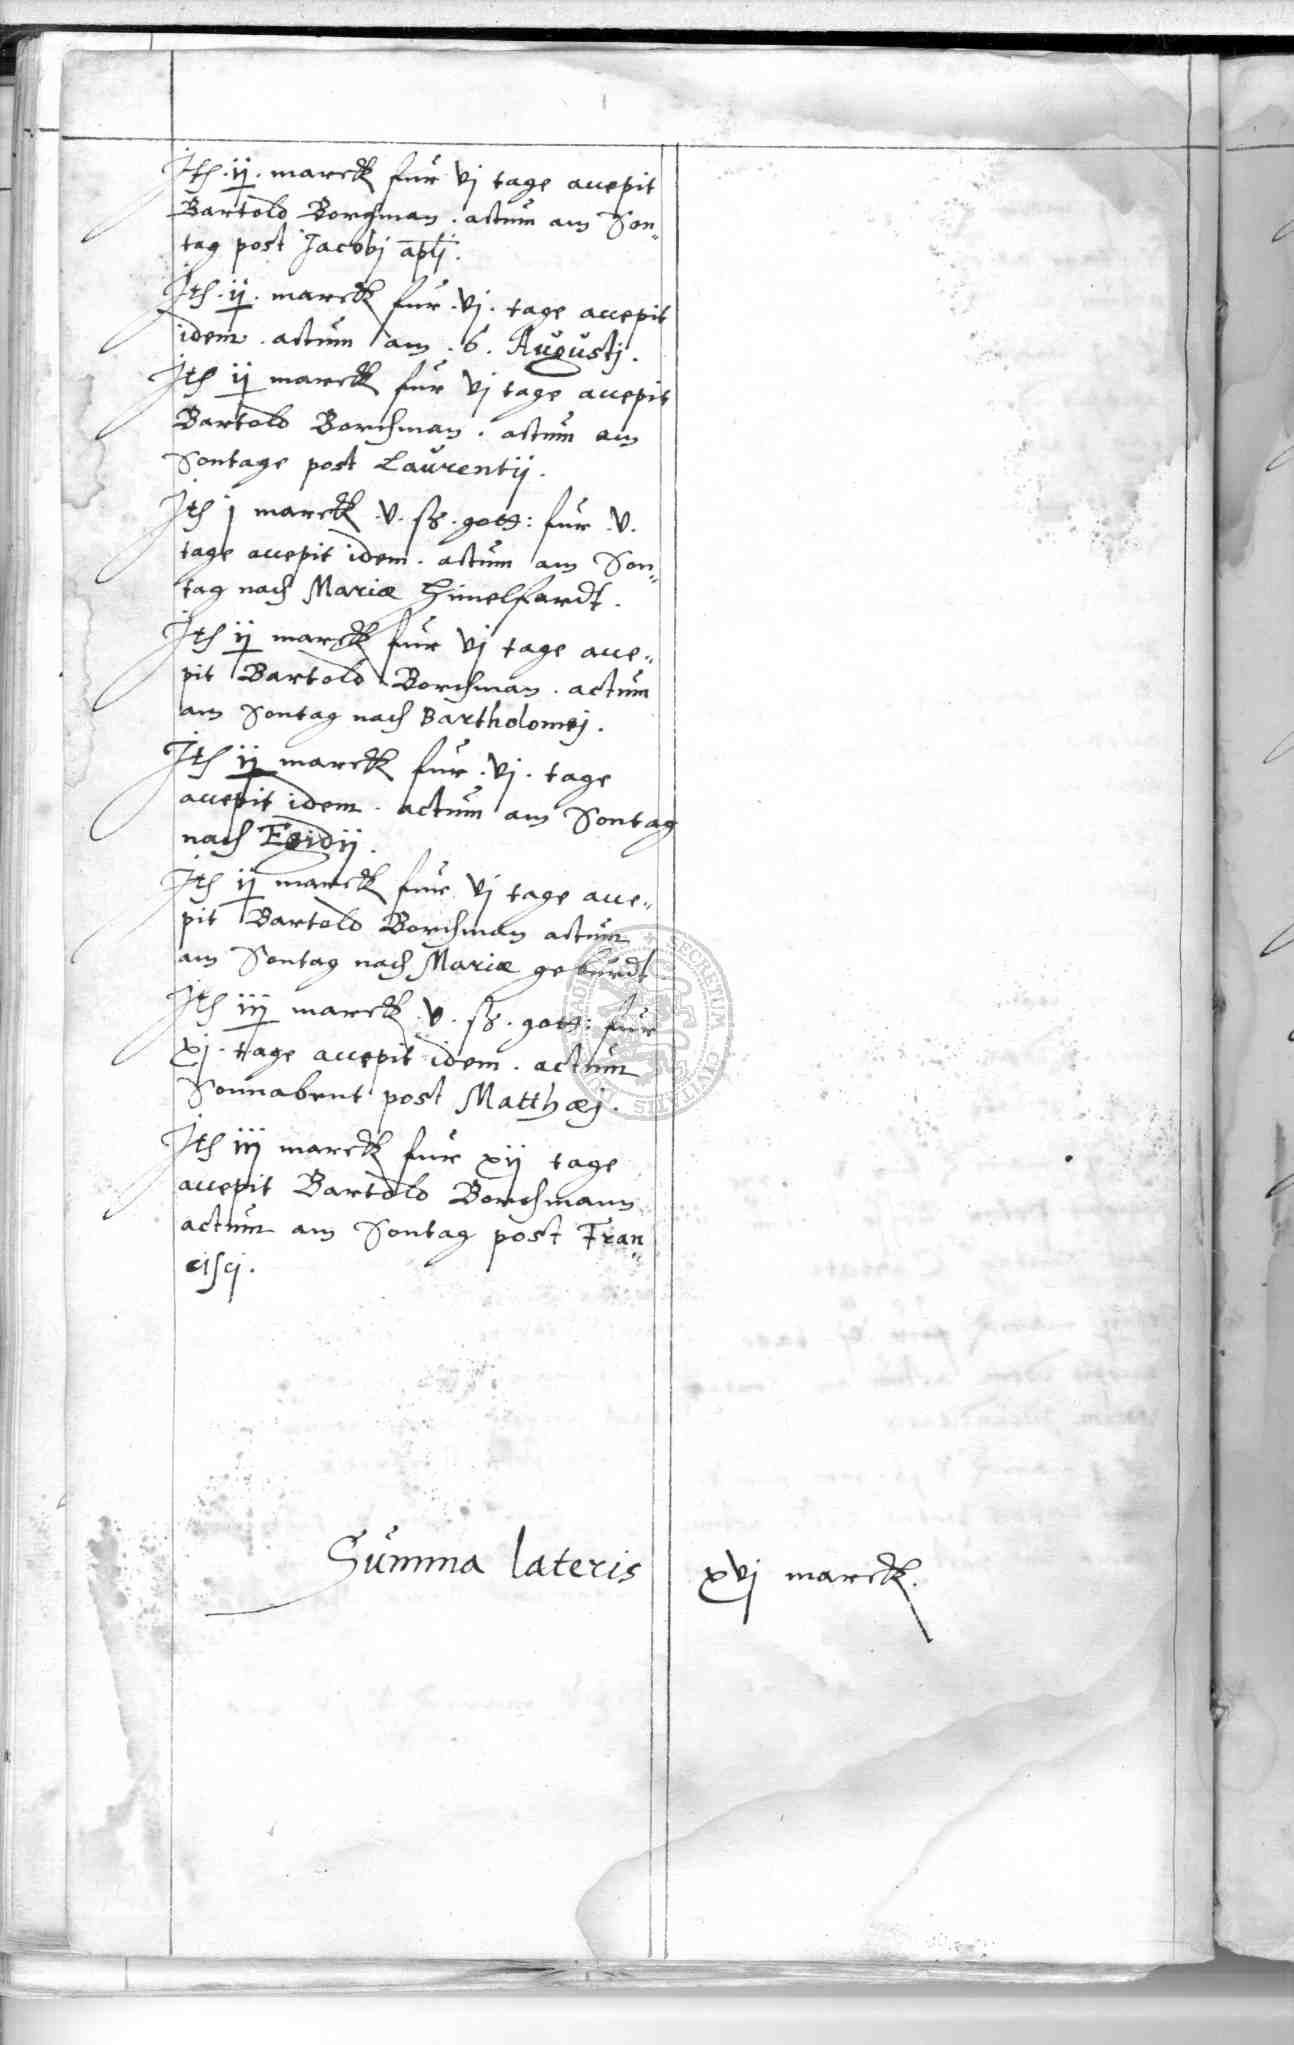 Itē ·ij· marck fur vj tage accepit
Bartold Borchman . actum am Son„
tag post Jacobj apl̄j .
Itē ·ij· marck fur ·vj· tage accepit
idem . actum am . 6 . Augustj .
Itē ij marck fur vj tage accepit
Bartold Borchman . actum am
Sontage post Laurentij .
Itē j marck ·v· ß . gott: fur ·v·
tage accepit idem . actum am Son„
tag nach Mariæ Himelfardt .
Itē ij marck fur vj tage acce„
pit Bartold Borchman . actum
am Sontag nach Bartholomej .
Itē ij marck fur ·vj· tage
accepit idem . actum am Sontag
nach Egidij .
Itē ij marck fur vj tage acce„
pit Bartold Borchman actum
am Sontag nach Mariæ geburdt
Itē iij marck ·v· ß . gott: fur
xj · tage accepit idem . actum
Sonnabent post Matthæj .
Itē iij marck fur xij tage
accepit Bartold Borchmann
actum am Sontag post Fran„
ciscj .
Summa lateris xvj marck .
SECRETUM CIVITATIS